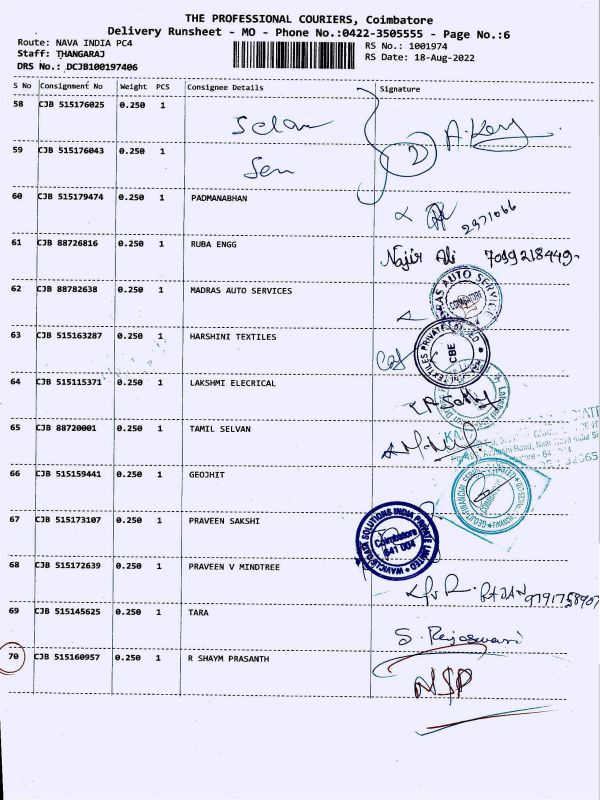 THE PROFESSIONAL COURIERS, Coimbatore
Delivery Runsheet - MO - Phone No.:0422-3505555 - Page No.:6
Route: NAVA INDIA PC4 RS No.: 1001974
Staff: THANGARAJ RS Date: 18-Aug-2022
DRS No.: DCJB100197406
S No Consignment No Weight PCS Consignee Details Signature
58 CJB 515176025 0.250 1
59 CJB 515176043 0.250 1
60 CJB 515179474 0.250 1 PADMANABHAN
2971066
61 CJB 88726816 0.250 1 RUBA ENGG Najir Ali
62 CJB 88782638 0.250 1 MADRAS AUTO SERVICES
63 CJB 515163287 0.250 1 HARSHINI TEXTILES CBE
64 CJB 515115371 0.250 1 LAKSHMI ELECRICAL
65 CJB 88720001 0.250 1 TAMIL SELVAN
66 CJB 515159441 0.250 1 GEOJHIT
67 CJB 515173107 0.250 1 PRAVEEN SAKSHI
WAVICLE DATA SOLUTIONS INDIA PRIVATE LIMITED
Coimbatore
641 004
68 CJB 515172639 0.250 1 PRAVEEN V MINDTREE
69 CJB 515145625 0.250 1 TARA S. Rejaswari
70 CJB 515160957 0.250 1 R SHAYM PRASANTH NSP